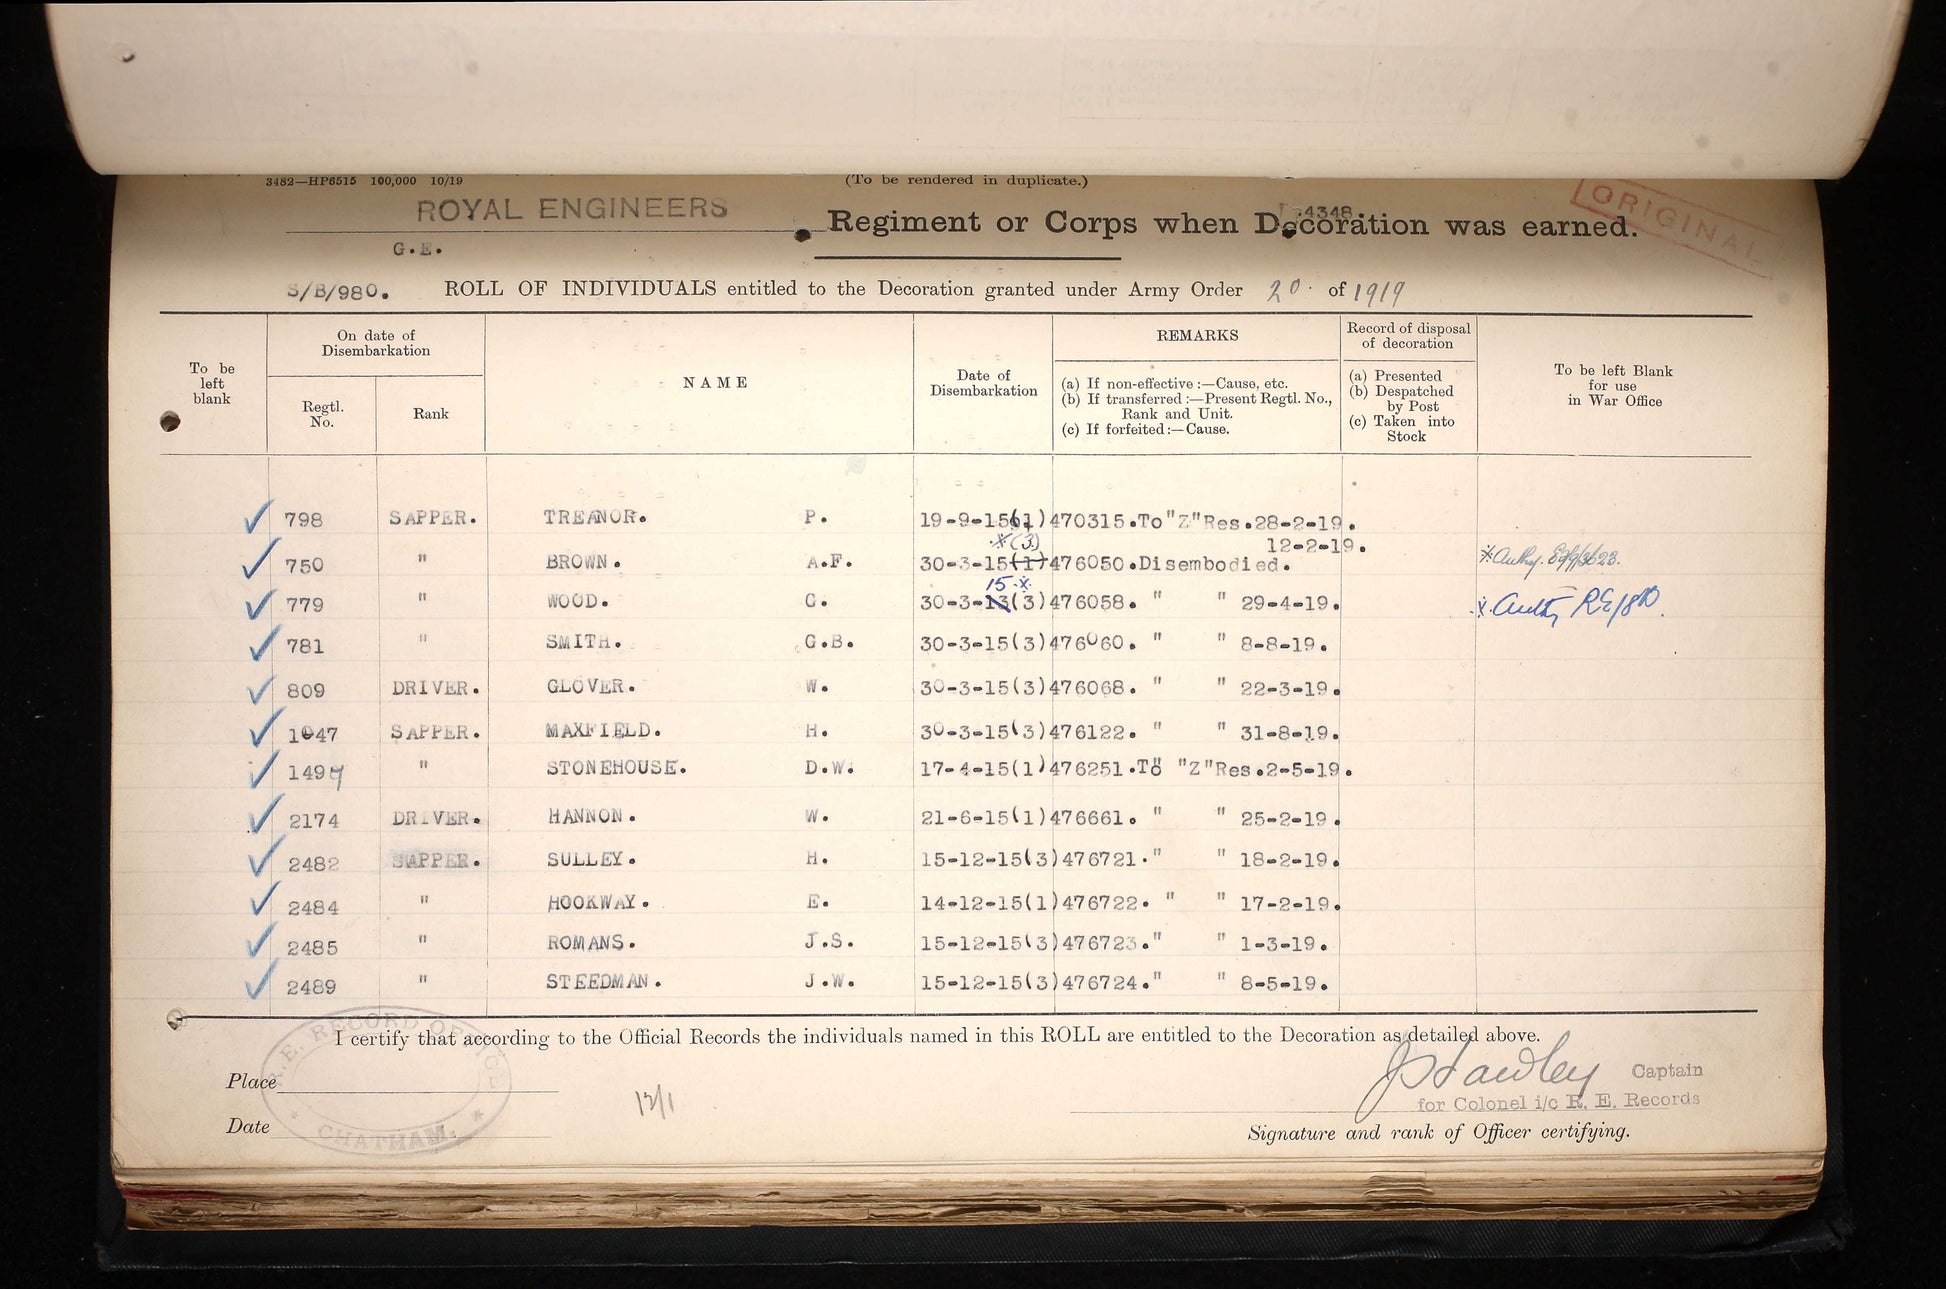 3482—HP6515 100,000 10/19
(To be rendered in duplicate.)
ORIGINAL
ROYAL ENGINEERS Regiment or Corps when Decoration was earned.
4348.
G.E.
S/B/980. ROLL OF INDIVIDUALS entitled to the Decoration granted under Army Order 20 of 1919
To be left blank
On date of Disembarkation
Regtl. No.
Rank
NAME
Date of Disembarkation
REMARKS
(a) If non-effective :—Cause, etc.
(b) If transferred :—Present Regtl. No., Rank and Unit.
(c) If forfeited :—Cause.
Record of disposal of decoration
(a) Presented
(b) Despatched by Post
(c) Taken into Stock
To be left Blank for use in War Office
798 SAPPER. TREANOR. P. 19-9-15(1) 470315. To "Z" Res. 28-2-19.
※(3) 12-2-19.
750 " BROWN. A.F. 30-3-15(1) 476050. Disembodied. ※ Authy.
15.※
779 " WOOD. C. 30-3-13(3) 476058. " " 29-4-19. ※ Authy
781 " SMITH. G.B. 30-3-15(3) 476060. " " 8-8-19.
809 DRIVER. GLOVER. W. 30-3-15(3) 476068. " " 22-3-19.
1047 SAPPER. MAXFIELD. H. 30-3-15(3) 476122. " " 31-8-19.
1497 " STONEHOUSE. D.W. 17-4-15(1) 476251. To "Z" Res. 2-5-19.
2174 DRIVER. HANNON. W. 21-6-15(1) 476661. " " 25-2-19.
2482 SAPPER. SULLEY. H. 15-12-15(3) 476721. " " 18-2-19.
2484 " HOOKWAY. E. 14-12-15(1) 476722. " " 17-2-19.
2485 " ROMANS. J.S. 15-12-15(3) 476723. " " 1-3-19.
2489 " STEEDMAN. J.W. 15-12-15(3) 476724. " " 8-5-19.
I certify that according to the Official Records the individuals named in this ROLL are entitled to the Decoration as detailed above.
R.E. RECORD OFFICE
CHATHAM.
Place
Captain
for Colonel i/c R. E. Records
12/1
Date
Signature and rank of Officer certifying.